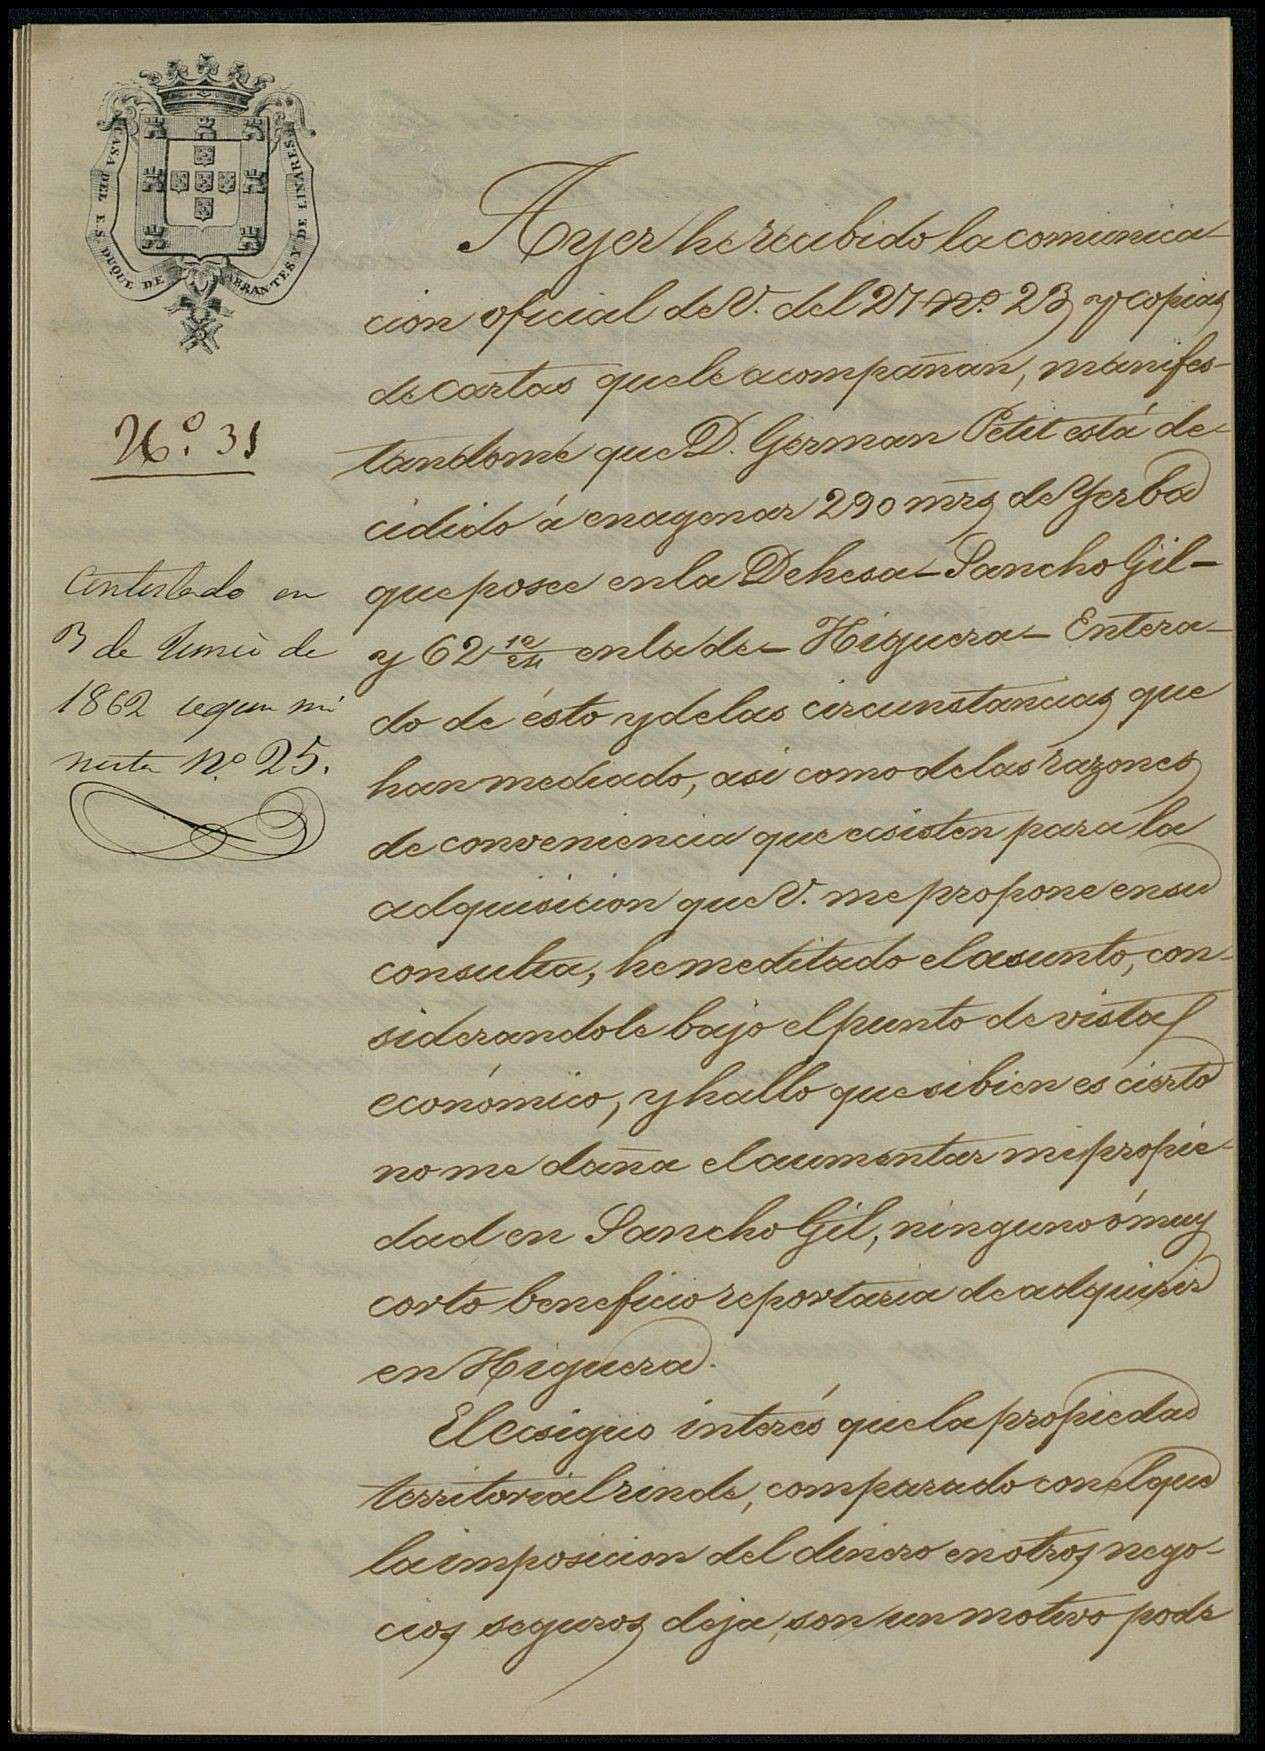 CASA DEL E. S. DUQUE DE ABRANTES Y DE LINARES
N.º 31
Contestado en
3 de Junio de
1862 segun mi
nuta N.º 25.
Ayer he recibido la comunica-
cion oficial de V. del 27 n.º 23 y copias
de cartas que le acompañan, manifes-
tandome que D. German Petit está de-
cidido á enagenar 290 mrs de Yerba
que posee en la Dehesa - Sancho Gil -
y 62 12/24 en la de - Higuera - Entera-
do de ésto y de las circunstancias que
han mediado, asi como de las razones
de conveniencia que ecsisten para la
adquisicion que V. me propone en su
consulta, he meditado el asunto, con-
siderandole bajo el punto de vista
económico, y hallo que si bien es cierto
no me daña el aumentar mi propie-
dad en Sancho Gil, ninguno ó muy
corto beneficio reportaria de adquirir
en Higuera.
El ecsiguo interés que la propiedad
territorial rinde, comparado con el que
la imposicion del dinero en otros nego-
cios seguros deja, son un motivo pode